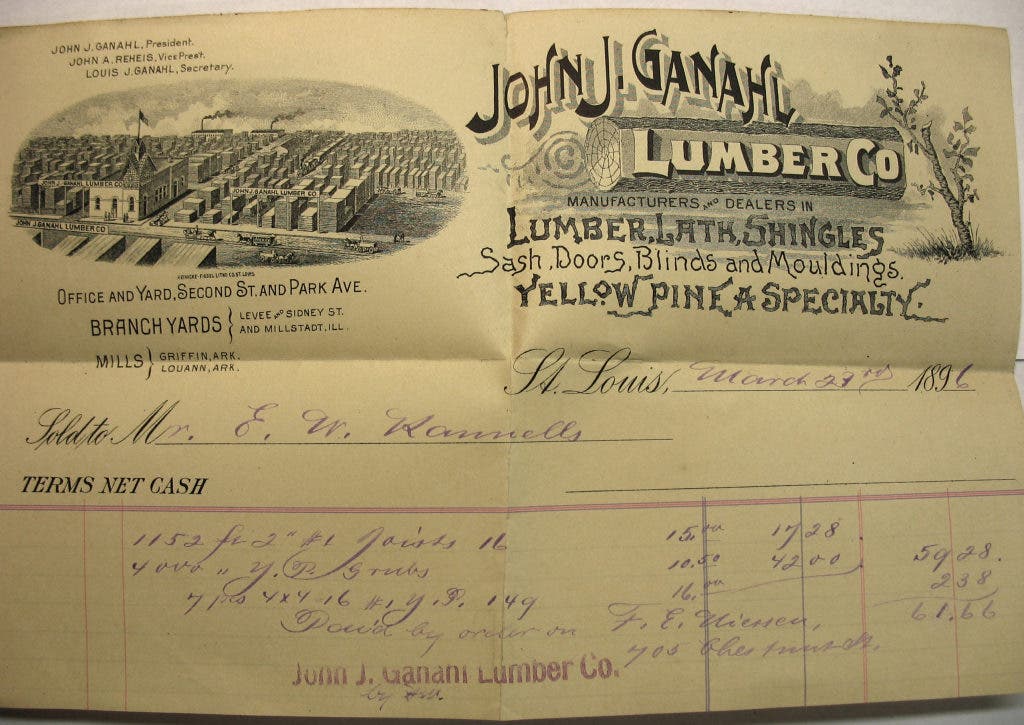 JOHN J. GANAHL, President.
JOHN A. REHEIS, Vice Prest.
LOUIS J. GANAHL, Secretary.
JOHN J. GANAHL LUMBER CO
JOHN J. GANAHL LUMBER CO
JOHN J. GANAHL LUMBER CO
OFFICE AND YARD, SECOND ST. AND PARK AVE.
BRANCH YARDS } LEVEE AND SIDNEY ST.
AND MILLSTADT, ILL.
MILLS } GRIFFIN, ARK.
LOUANN, ARK.
JOHN J. GANAHL
LUMBER CO
MANUFACTURERS AND DEALERS IN
LUMBER, LATH, SHINGLES
Sash, Doors, Blinds and Mouldings.
YELLOW PINE A SPECIALTY.
St. Louis, March 23rd 1896
Sold to Mr. E. W. Kannells
TERMS NET CASH
1152 ft 2" #1 Joists 16 15.00 17 28
4000 " Y. P. Grubs 10.50 42 00 59 28.
7 pcs 4x4-16 #1 Y. P. 149 16.00 2 38
Paid by order on F. E. Niesen, 61.66
705 Chestnut St.
John J. Ganahl Lumber Co.
by